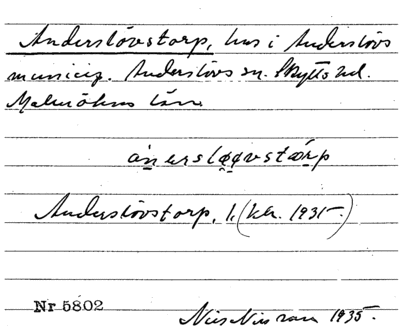 Anderslövstorp, hus i Anderslövs
municip. Anderslövs sn. Skytts hd.
Malmöhus län
Anderslövstorp, 1. (kh. 1931-)
Nr 5802
Nils Nilsson 1935.